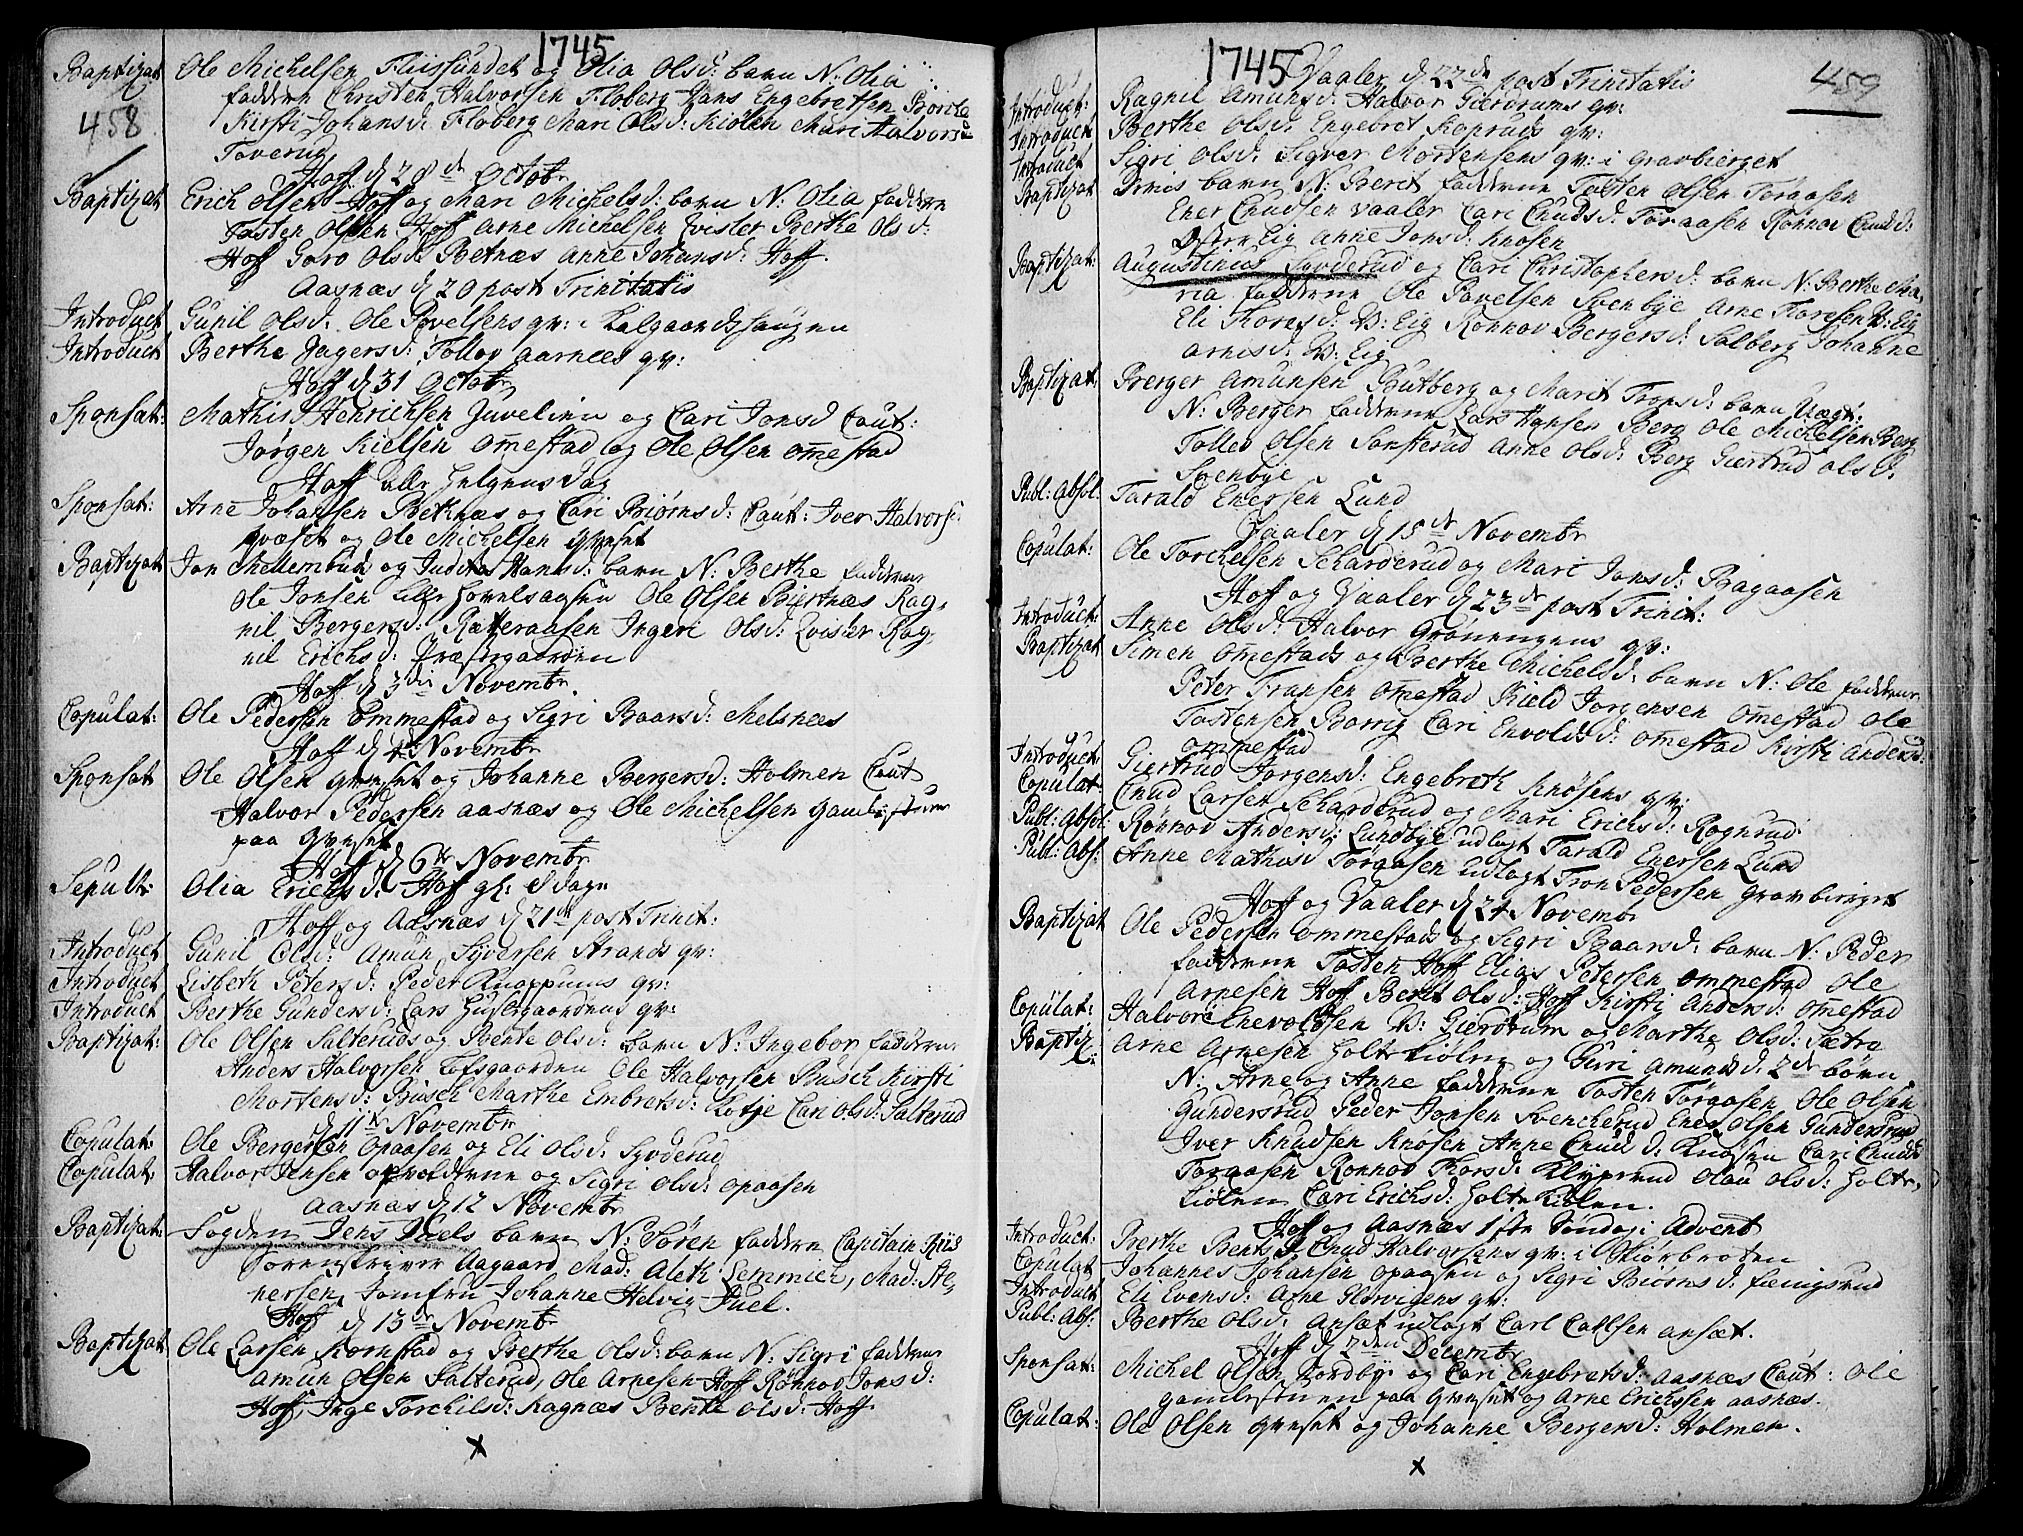 1745
458
Baptizat Ole Michelsen Fliisundet og Olia Olsd: barn N: Olia
faddere Christen Halvorsen Floberg Hans Engebretsen
Kirsti Johansd: Floberg Mari Olsd: Kiølen Mari Halvorsd
Toverud
Hoff d 28de Octobr
Baptizat Erich Olsen Hoff og Mari Michelsd: barn N: Olia faddere
Tosten Olsen Hoff Arne Michelsen Qvisler Berthe Olsd:
Hoff Goro Olsd: Betnæs Anne Johansd: Hoff.
Aasnæs d 20 post Trinitatis
Introduct Gunil Olsd: Ole Povelsens qv: i Kalgaardshaugen
Introduct Berthe Jngersd: Tollov Aarnæs qv:
Hoff d 31 Octobr
Sponsat: Mathis Henrichsen Juvelien og Cari Jonsd Caut:
Jørgen Kielsen Omestad og Ole Olsen Omestad
Hoff alle Helgens dag
Sponsat: Arne Johansen Betnæs og Cari Biørnsd: Caut: Iver Halvors:
qvæset og Ole Michelsen Qveset
Baptizat Jon Mellembud og Judithe Hansd: barn N: Berthe faddere
Ole Jonsen lille Hovelsaasen Ole Olsen Biertnæs Rag-
nil Bergersd: Ratteraasen Ingeri Olsd: Qvisler Rag-
nil Erichsd: Præstegaarden
Hoff d 3die Novembr.
Copulat: Ole Pedersen Ommestad og Sigri Baarsd: Melsnæs
Hoff d 4de Novembr
Sponsat Ole Olsen Qveset og Johanne Bergersd: Holmen Caut
Halvor Pedersen Aasnæs og Ole Michelsen Gamlestuen
paa Qveset
Hoff d 6te Novembr
Sepult: Olia Erichsd: Hoff gl: 8 dage
Hoff og Aasnæs d 21de post Trinit:
Introduct Gunil Olsd: Amun Syversen Strands qv:
Introduct Lisbeth Petersd: Peder Knappums qv:
Introduct Berthe Gundersd: Lars Huusgaardens qv:
Baptizat: Ole Olsen Salteruds og Bente Olsd: barn N: Ingebor faddere
Anders Halvorsen Løfsgaarden Ole Halvorsen Busch Kirsti
Mortensd: Busch Marthe Embretsd: Kotje Cari Olsd: Salterud
d 11te Novembr
Copulat: Ole Bergersen Opaasen og Eli Olsd: Syderud
Copulat: Halvor Jensen Opvoldene og Sigri Olsd: Opaasen
Aasnæs d 12 Novembr
Baptizat: Fogden Jens Juels barn N: Søren faddere Capitain Riis
Sorenskriver Aagaard Mad: Aleth Lemmich, Mad: Ste-
nersen, Jomfru Johanne Helvig Juel.
Hoff d 13de Novembr
Baptizat Ole Larsen Kornstad og Berthe Olsd: barn N: Sigri faddere
Amun Olsen Salterud, Ole Arnesen Hoff Rønnov Jonsd:
Hoff, Inge Torchilsd: Kagnæs Bente Olsd: Hoff
x
1745
459
Vaaler d 22de post Trinitatis
Introduct: Ragnil Amunsd: Halvor Gierdrums qv:
Introduct Berthe Olsd: Engebret Kopruds qv:
Introduct Sigri Olsd: Sigver Mortensens qv: i Gravbierget
Baptizat Dinis barn N: Berit faddere Tosten Olsen Toraasen
Ener Cnudsen Vaaler Cari Cnudsd: Toraasen Rønnov Cnudsd:
Østre Eig Anne Jonsd: Knosen
Baptizat: Augustinius Soyderud og Cari Christophersd: barn N: Berthe Ma-
ria faddere Ole Pavelsen Svenbye Arne Toresen V: Eig
Eli Thoresd: V: Eig Rønnov Bergersd: Solberg Johanne
Arnisd: V: Eig
Baptizat: Berger Amunsen Butberg og Marit Tronsd: barn Uægt:
N: Berger faddere Lars Hansen Berg Ole Michelsen Berg
Tollev Olsen Sonsterud Anne Olsd: Berg Giertrud Olsd.
Svenbye
Publ: Absol: Tarald Enersen Lund
Vaaler d 15de Novembr
Copulat: Ole Torchelsen Scharderud og Mari Jonsd: Bagaasen
Hoff og Vaaler d 23de post Trinit:
Introduct: Anne Olsd: Halvor Grønengens qv:
Baptizat Simen Omestads og Berthe Michelsd: barn N: Ole faddere
Peter Fransen Omestad Kield Jorgensen Omestad Ole
Tostensen Borrig Cari Envoldsd: Omestad Kirsti Andersd:
Ommestad
Introduct: Giertrud Jorgensd: Engebreth Knøsens qv:
Copulat: Cnud Larsen Scharderud og Mari Erichsd: Rognrud
Publ: Absol: Rønnov Andersd: Lundbye udlagt Tarald Enersen Lund
Publ: Abs: Anne Mathisd Toraasen Udlagt Tron Pedersen Gravbierget
Hoff og Vaaler d 24 Novembr
Baptizat Ole Pedersen Ommestads og Sigri Baarsd: barn N: Peder
faddere Tosten Hoff Elias Petersen Ommestad Ole
Arnesen Hoff Berit Olsd: Hoff Kirsti Andersd: Omestad
Copulat: Halvor Enevoldsen V: Gierdrum og Marthe Olsd: Sætre
Baptiz: Arne Arnesen Holtekiølen og Siri Amunsd: 2de børn
N: Arne og Anne faddere Tosten Toraasen Ole Olsen
Gundersrud Peder Jonsen Svencherud Ener Olsen Gundersrud
Iver Knudsen Knosen Anne Cnudsd: Knosen Cari Cnudsd
Toraasen Rønnov Thorsd: Klyprud Olau Olsd: Holte-
kiølen Cari Erichsd: Holtekiølen.
Hoff og Aasnæs 1ste Søndag i Advent
Introduct: Berthe Bentsd: Cnud Halvorsens qv: i Skiørbroten
Copulat Johannes Johansen Opaasen og Sigri Biørnsd: Fæingsrud
Introduct Eli Evensd: Arne Glorvigens qv:
Publ: Abs: Berthe Olsd: Ansæt udlagt Carl Carlsen Ansæt.
Hoff d 2den Decembr
Sponsat: Michel Olsen Nordbye og Cari Engebretsd: Aasnæs Caut: Ole
Gamlestuen paa Qveset og Arne Erichsen Aasnæs.
Copulat: Ole Olsen Qveset og Johanne Bergersd: Holmen.
x